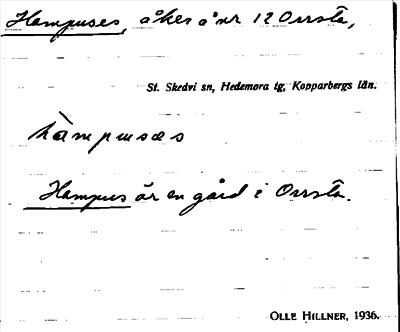 Hampuses, åker å nr 12 Orrsta,
St. Skedvi sn, Hedemora tg, Kopparbergs län.
hàmpusæs
Hampus är en gård i Orrsta.
OLLE HILLNER, 1936.